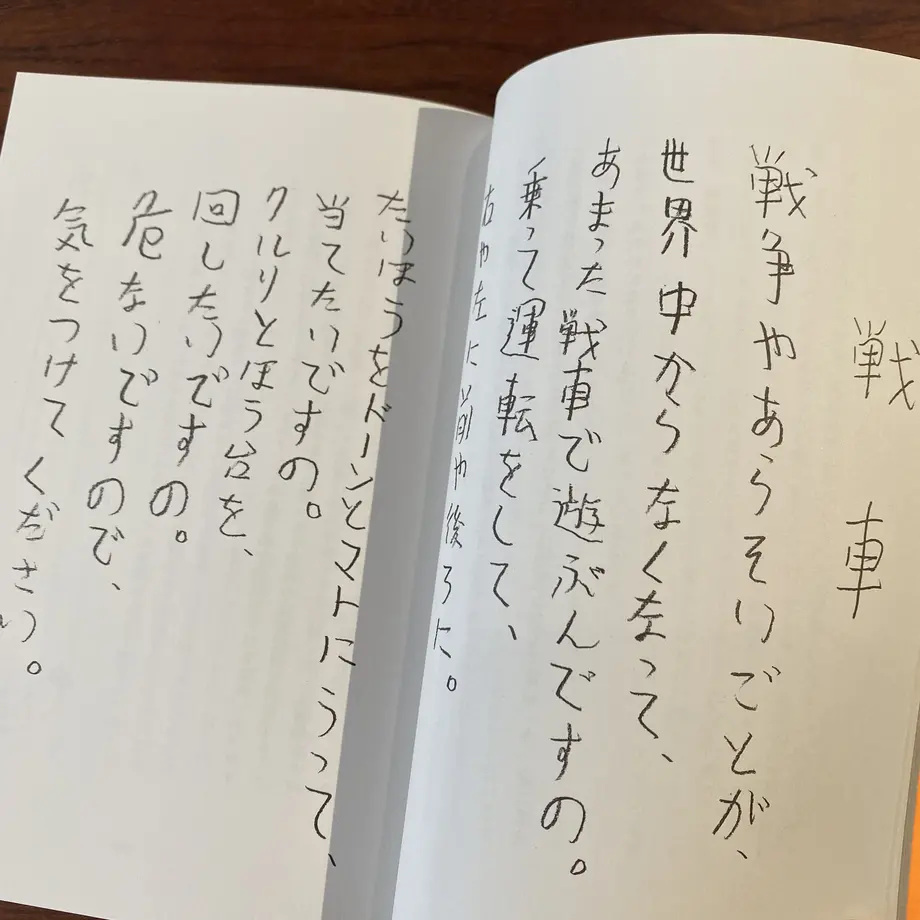 戦車
戦争やあらそいごとが、
世界中からなくなって、
あまった戦車で遊ぶんですの。
乗って運転をして、
右や左に前や後ろに。
たいほうをドーンとマトにうって、
当てたいですの。
クルリとほう台を、
回したいですの。
危ないですので、
気をつけてください。